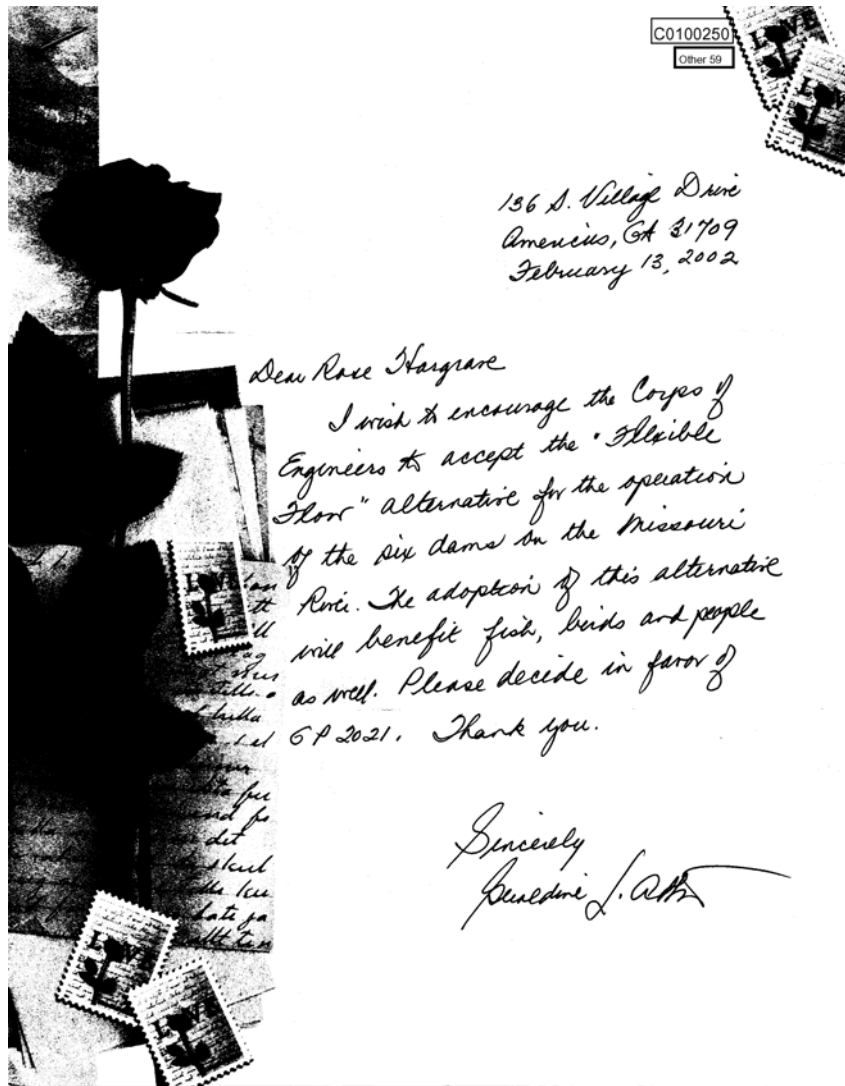 C0100250
Other 59
LOVE
LOVE
136 S. Village Drive
Americus, GA 31709
February 13, 2002
Dear Rose Hargrave
I wish to encourage the Corps of
Engineers to accept the "Flexible
Flow" alternative for the operation
of the six dams on the Missouri
River. The adoption of this alternative
will benefit fish, birds and people
as well. Please decide in favor of
GP 2021. Thank you.
Sincerely
Geraldine L.
LOVE
LOVE
LOVE